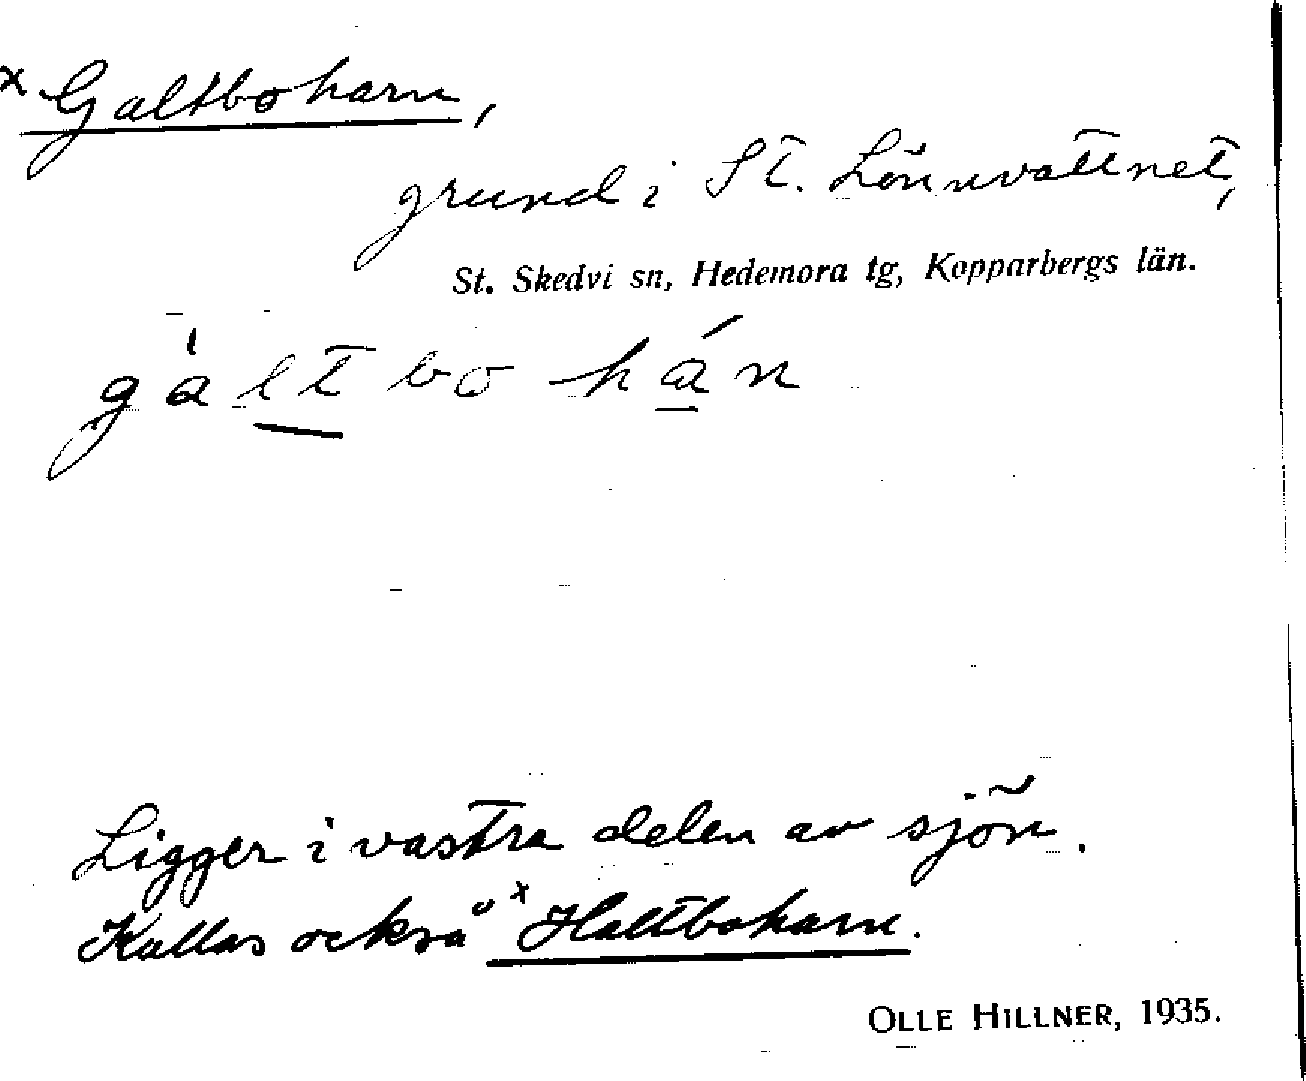 x Galtboharn,
grund i St. Lönnvattnet,
St. Skedvi sn, Hedemora tg, Kopparbergs län.
gàltbohán
Ligger i västra delen av sjön.
Kallas också x Haltboharn.
OLLE HILLNER, 1935.